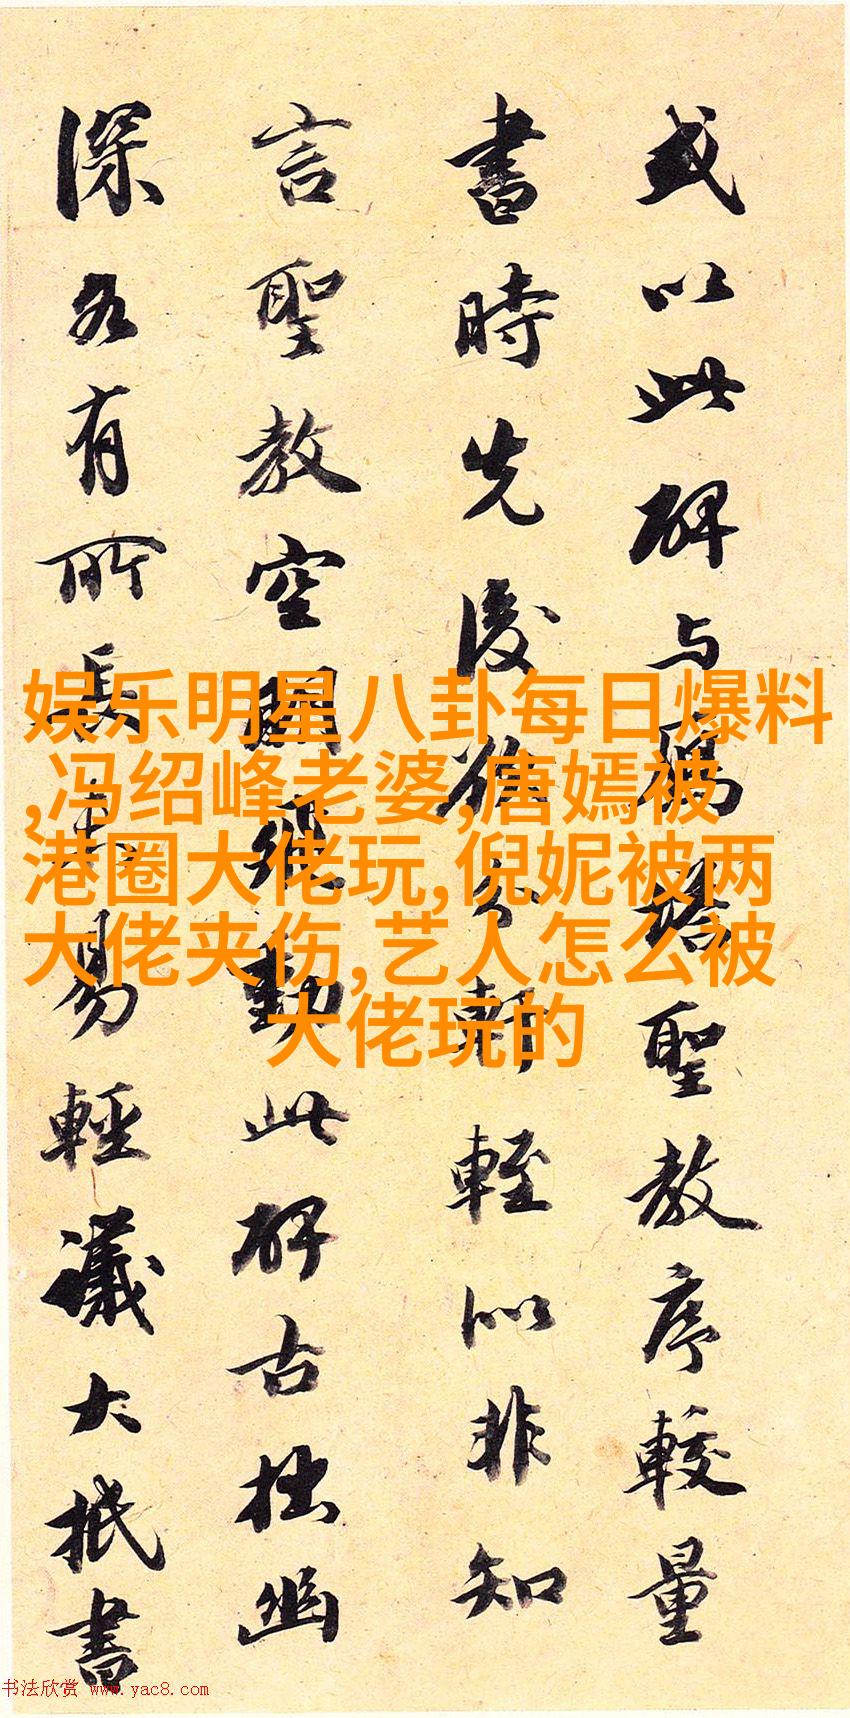 或以此碑与鴈塔聖教序較量
書時先後猶分軒輊以非知
言聖教空動此碑古拙幽
深各有所長未易輕議大抵書
娱乐明星八卦每日爆料
,冯绍峰老婆,唐嫣被
港圈大佬玩,倪妮被两
大佬夹伤,艺人怎么被
大佬玩的
书法欣赏 www.yac8.com